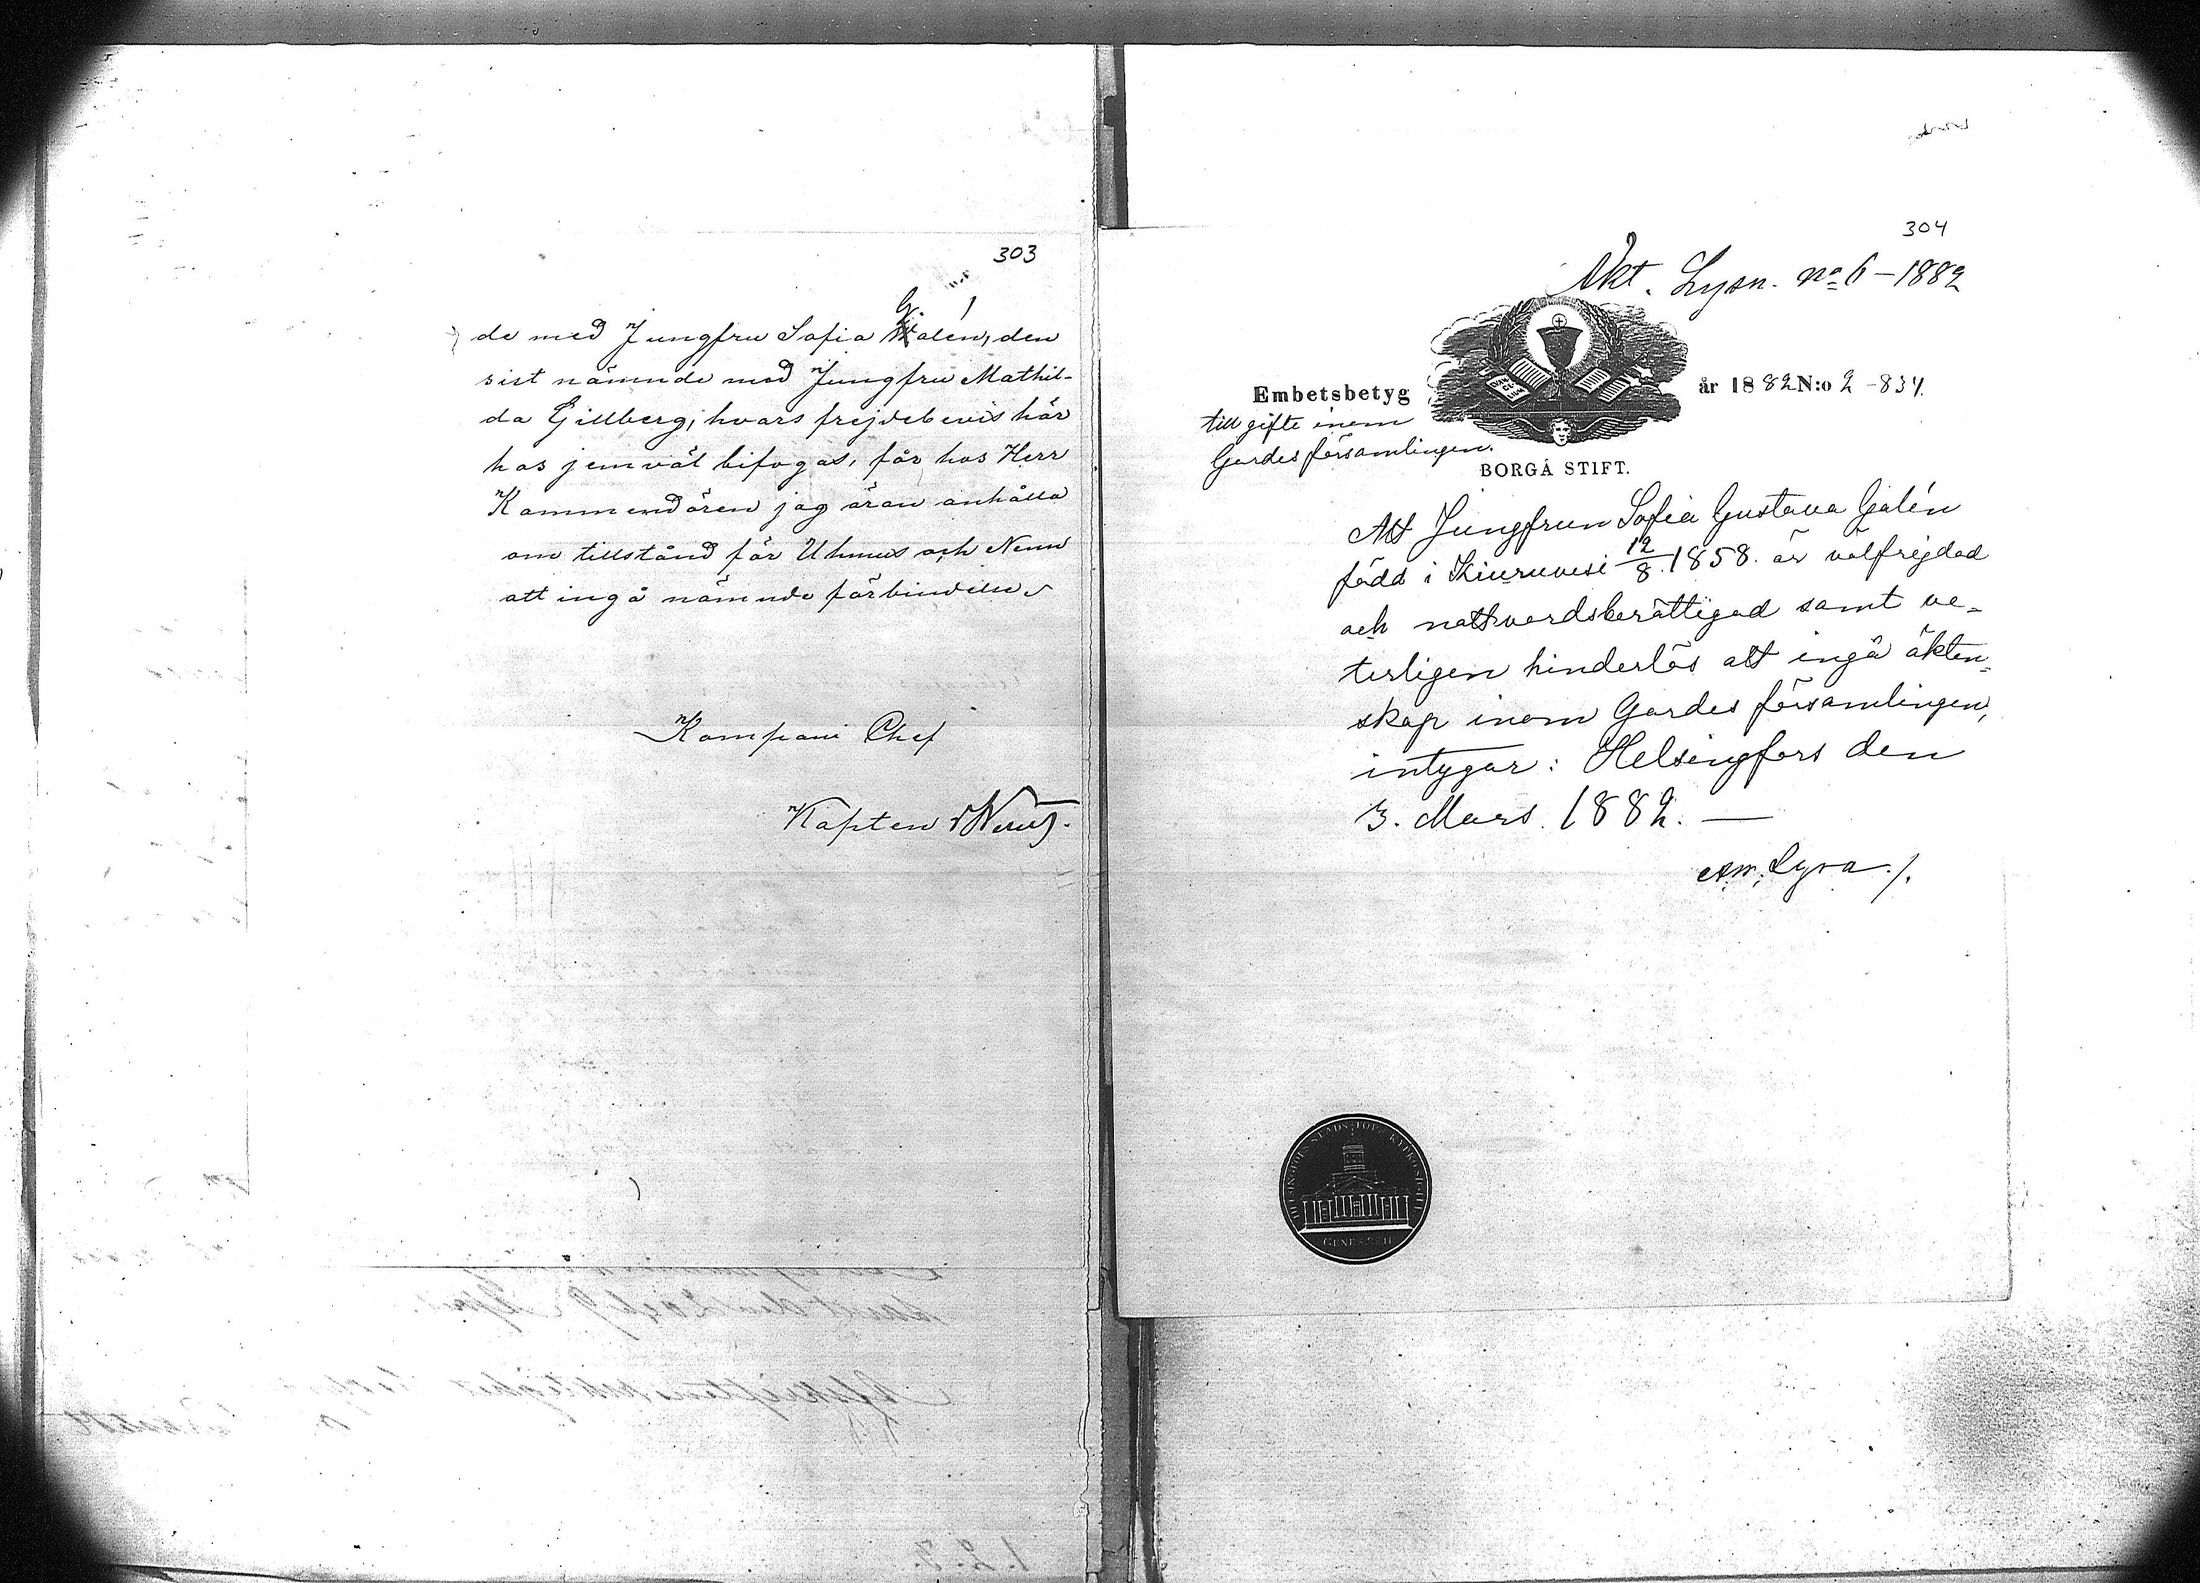 303
de med Jungfru Sofia Galén, den
sist nämnde med Jungfru Mathil-
da Gillberg, hvars frejdebevis här
hos jemväl bifogas, får hos Herr
Kommendören jag äran anhålla
om tillstånd för Uhmus och Nenn
att ingå nämnde förbindelser
Kompani Chef
Kapten
304
Akt. Lysn. No 6 - 1882
Embetsbetyg
år 1882 N:o 2 - 834.
till gifte inom
Gardesförsamlingen.
BORGÅ STIFT.
Att Jungfrun Sofia Gustava Galén
född i Kiuruvesi 12/8 1858. är välfrejdad
och nattvardsberättigad samt ve-
terligen hinderlös att ingå äkten-
skap inom Gardesförsamlingen,
intygar: Helsingfors den
3. Mars 1882. —
Lyra